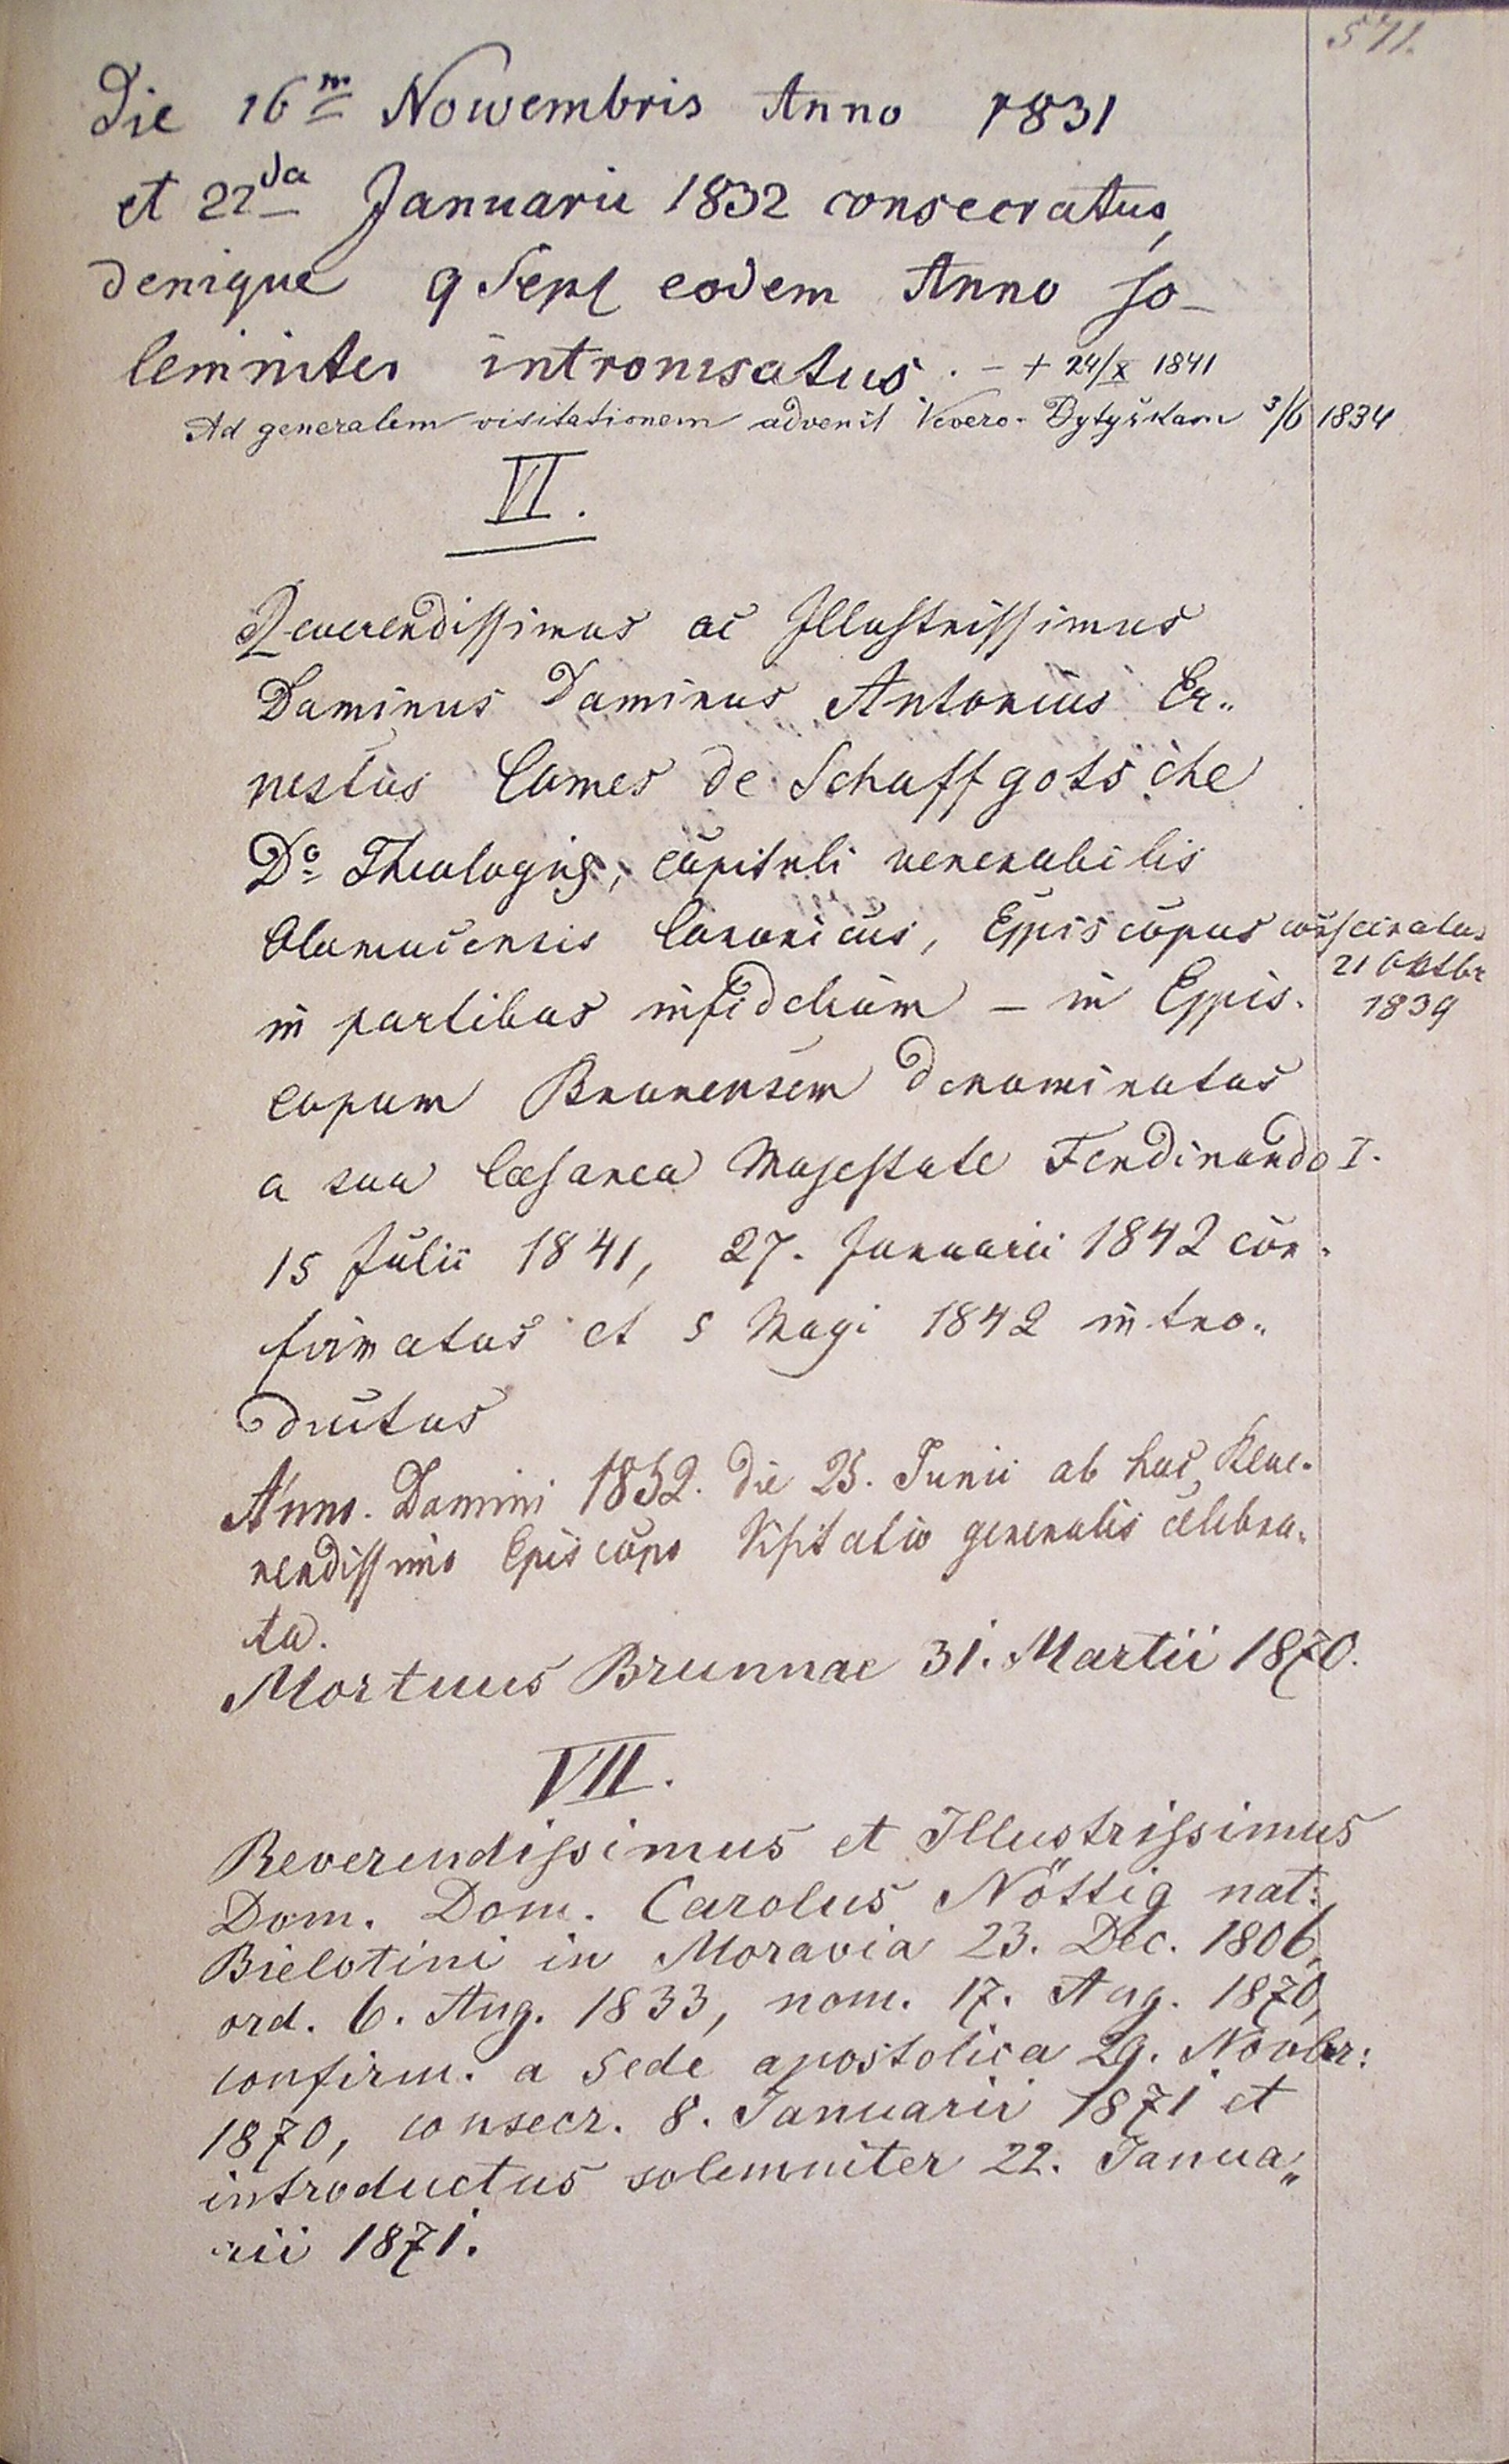 541.
Die 16m Nowembris Anno 1831
et 22da Januarii 1832 consecratus,
denique 9 Sept eodem Anno so-
lemniter intronisatus. - + 24/X 1841
Ad generalem visitationem advenit Vevero-Bytyškam 3/6 1834
VI.
Reverendissimus ac Illustrissimus
Dominus Dominus Antonius Er„
nestus Comes de Schaffgotsche
Dr Theologiae, capituli venerabilis
Olomucensis Canonicus, Eppiscopus consecratus
21 Oktbr
1839
in partibus infidelium – in Eppis-
copum Brunensem denominatus
a sua Caesarea Majestate Ferdinando I.
15 Julii 1841, 27. Januarii 1842 con-
firmatus et 5 Magi 1842 intro„
ductus
Anno. Domini 1852. die 25. Junii ab hoc Reve-
rendissimo Episcopo Visitatio generalis celebra-
ta.
Mortuus Brunnae 31. Martii 1870.
VII.
Reverendissimus et Illustrissimus
Dom. Dom. Carolus Nöttig nat:
Bielotini in Moravia 23. Dec. 1806,
ord. 6. Aug. 1833, nom. 17. Aug. 1870,
confirm. a sede apostolica 29. Novbr:
1870, consecr. 8. Januarii 1871 et
introductus solemniter 22. Janua„
rii 1871.